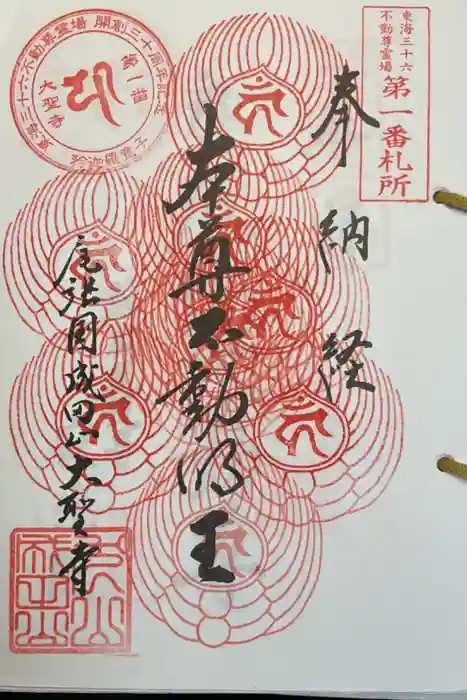 東海三十六
不動尊霊場
第一番札所
奉納経
本尊不動明王
尾張国成田山大聖寺
東海三十六不動尊霊場 開創三十周年記念
第一番
大聖寺
矜迦羅童子